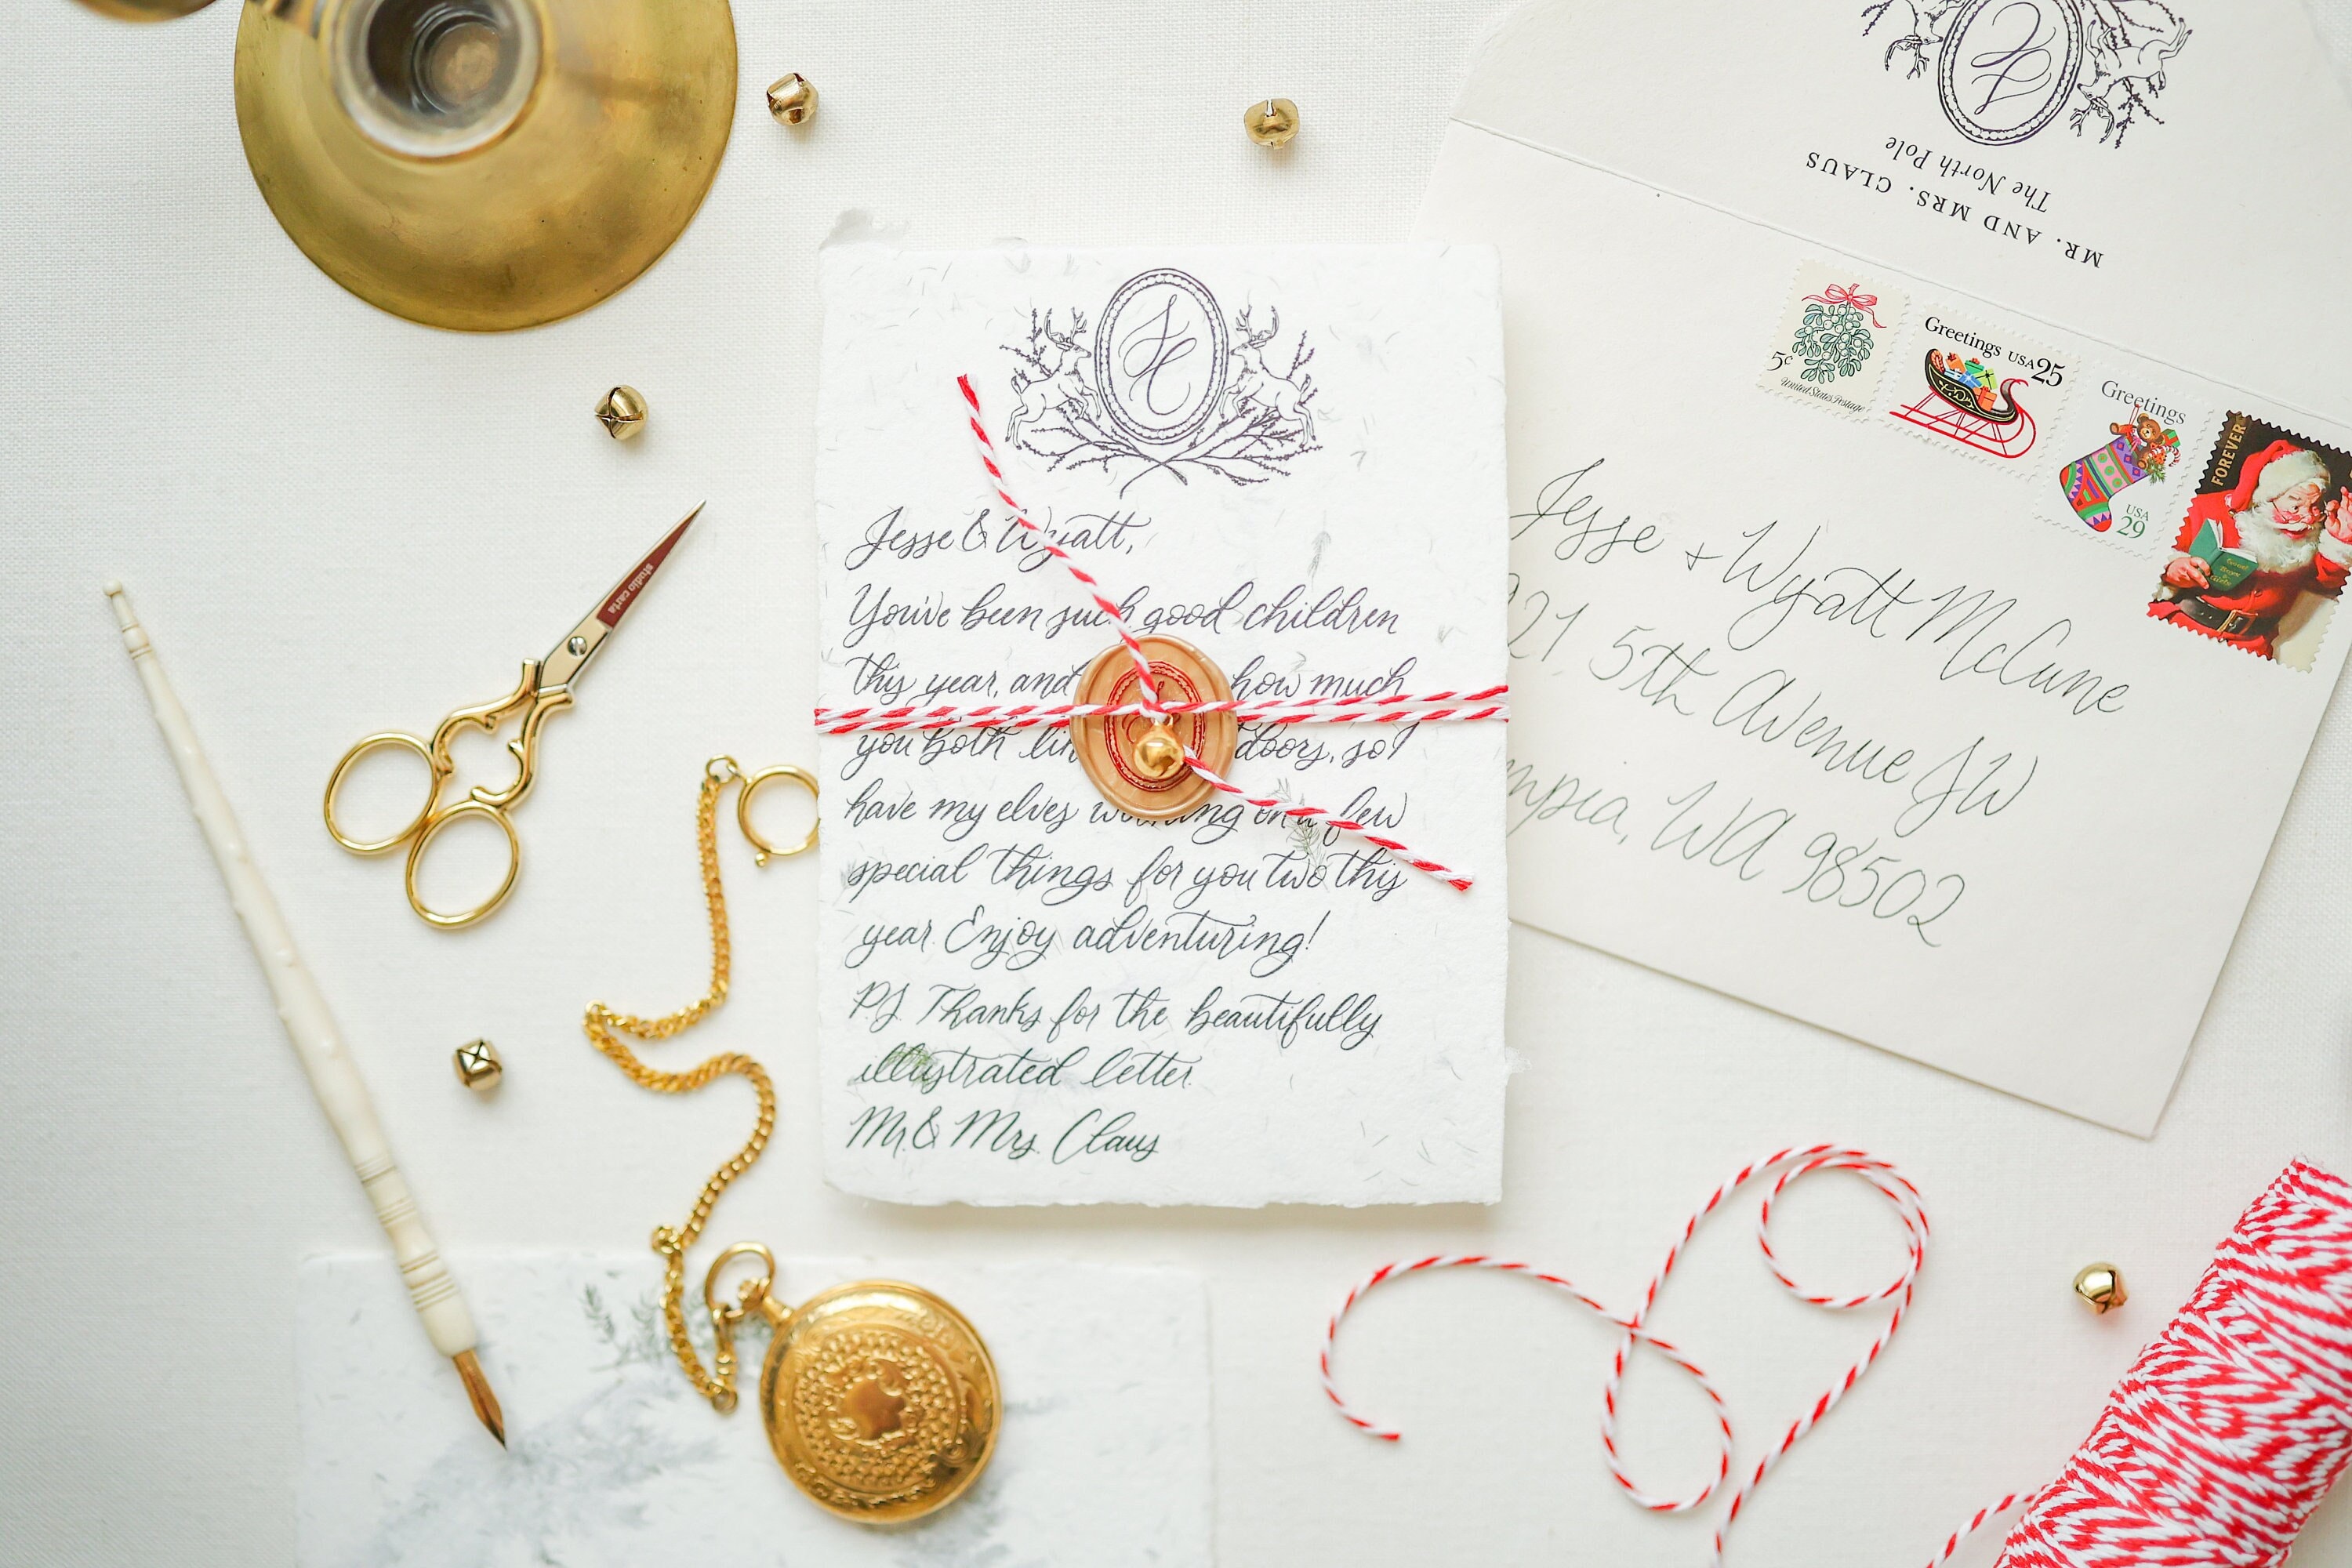 SC
Jesse & Wyatt,
You've been such good children
this year, and how much
you both doors, so I
have my elves working on a few
special things for you two this
year. Enjoy adventuring!
P.S. Thanks for the beautifully
illustrated letter.
Mr. & Mrs. Claus
MR. AND MRS. CLAUS
The North Pole
5c
United States Postage
Greetings USA 25
Greetings
USA
29
FOREVER
Jesse + Wyatt McCune
5th Avenue SW
WA 98502
studio carta